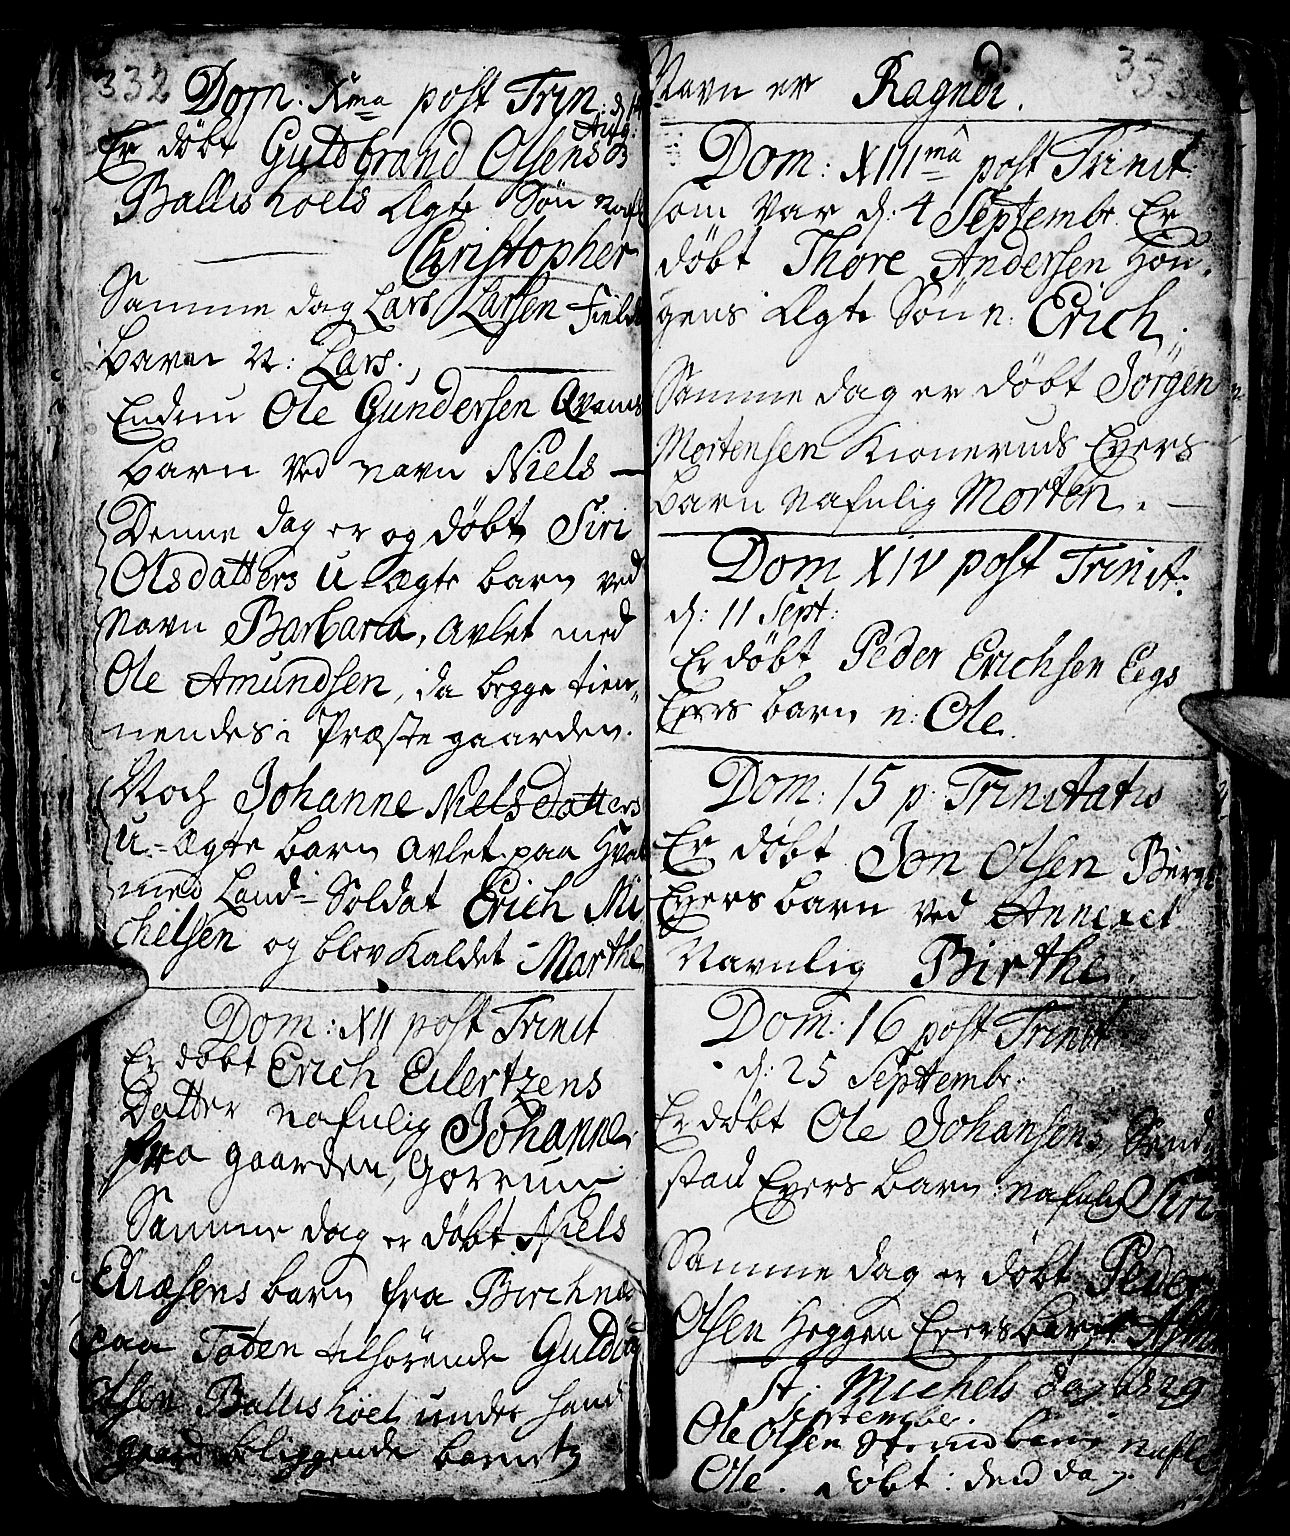 332
Dom. Xma post Trin:
Er döbt Guldbrand Olsens
Aug:
Ballishoels Ægte Sön
Christopher
Samme dag Lars Larsen
barn N: Lars.
Endnu Ole Gundersen Qvams
barn ved navn Niels —
Denne dag er og döbt Siri
Olsdatters U-ægte barn ved
Navn Barbara, avlet med
Ole Amundsen, da begge tien-
nendes i Præstegaarden.
Noch Johanne Nielsdatters
U-Ægte barn avlet paa
med Land-Soldat Erich Mi
chelsen og blev kaldet Marthe
Dom: XII post Trinit
Er döbt Erich Eilertzens
Datter nafnlig Johanne
fra gaarden,
Samme dag er döbt Niels
Eliæsens barn fra
paa Toten tilhörende
Olsen Ballishoel under
liggende barn
33
Navn er Ragndi.
Dom: XIIIma post Trinit
som var d: 4 Septembr. Er
döbt Thore Andersen Hou-
gens Ægte Sön n: Erich.
Samme dag er döbt Jörgen
Mortensen Kioneruds Eyers
barn nafnlig Morten. —
Dom XIV post Trinit:
d: 11 Sept:
Er döbt Peder Erichsen Eegs
Eyers barn n: Ole.
Dom: 15 p: Trinitatis
Er döbt Jon Olsen
Eyers barn ved Annexet
Navnlig Birthe.
Dom: 16 post Trinit
d: 25 Septembr.
Er döbt Ole Johansens
stad Eyers barn nafnlig Siri
Samme dag er döbt Peder
Olsen Heggen Eyers barn
St: Michels dag d 29
Septembr.
Ole Olsen barn nafnl
Ole. döbt: den dag.